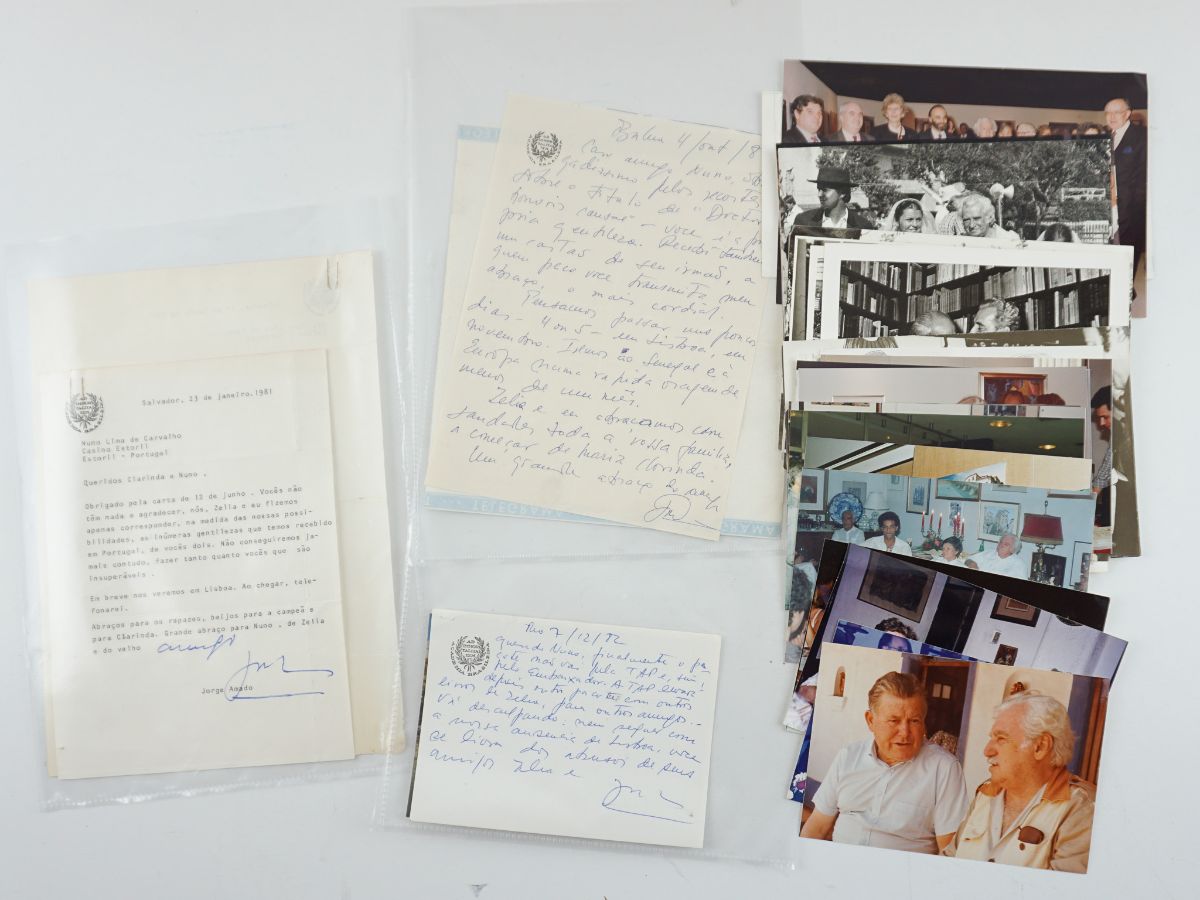 Salvador, 23 de janeiro,1981
Nuno Lima de Carvalho
Casino Estoril
Estoril - Portugal
Queridos Clarinda e Nuno .
Obrigado pela carta de 12 de junho . Vocês não
têm nada a agradecer, nós, Zelia e eu fizemos
apenas corresponder, na medida das nossas possi-
bilidades, as inúmeras gentilezas que temos recebido
em Portugal, de vocês dois. Não conseguiremos ja-
mais contudo, fazer tanto quanto vocês que são
insuperáveis .
Em breve nos veremos em Lisboa. Ao chegar, tele-
fonarei.
Abraços para os rapazes, beijos para a campeã e
para Clarinda. Grande abraço para Nuno , de Zelia
e do velho amigo
Jorge Amado
Bahia 4/out/8
Caro amigo Nuno,
gadissimo pelos recortes
sobre o titulo de "Doctor
honoris causa" - voce é a pro
pria gentileza. Recebi também
um cartas de seu irmão, a
quem peço voce transmita meu
abraço, o mais cordial.
Pensamos passar uns poucos
dias - 4 ou 5 - em Lisboa, em
novembro. Iremos ao Senegal e à
Europa numa rapida viagem de
menos de um mês.
Zelia e eu abraçamos com
saudades toda a vossa familia,
a começar de Maria Clorinda.
Um grande abraço do amigo
TELEGRAMA
Rio 7/12/82
Querido Nuno, finalmente o pa
cote não vai pela TAP e, sim,
pelo Embaixador. A TAP levará
depois outro pacote com outros
livros de Zelia, para outros amigos.-
Vá desculpando: nem sequer com
a nossa ausencia de Lisboa, voce
se livra dos abusos de seus
amigos Zelia e